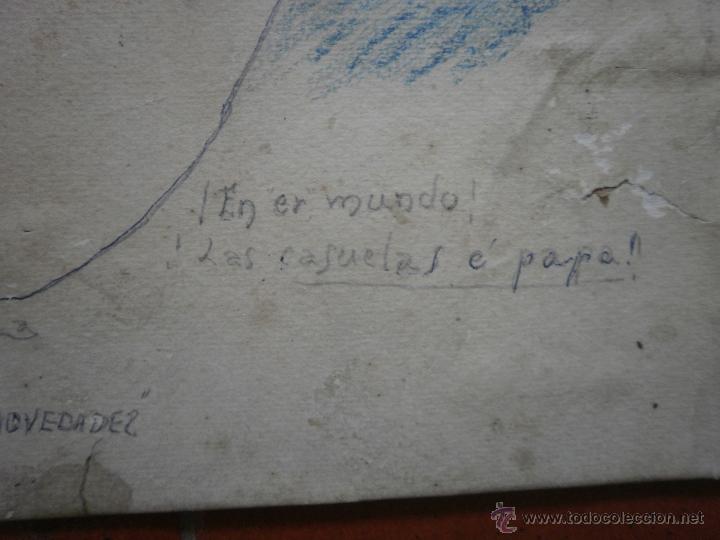 ¡En er mundo!
¡Las casuelas é papa!
NOVEDADES"
www.todocoleccion.net